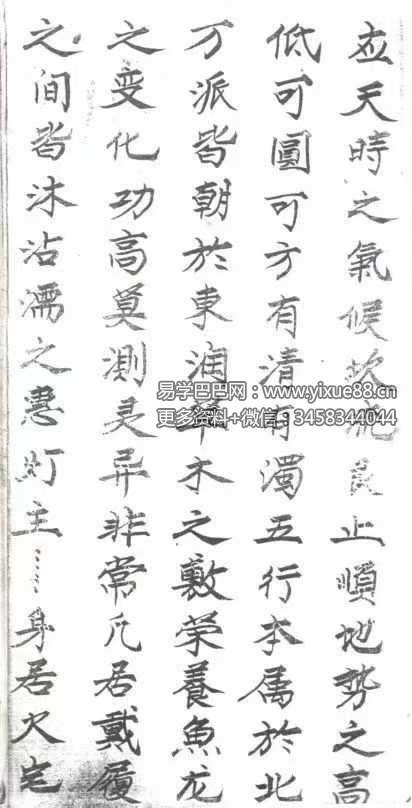 应天時之氣候坎流艮止順地势之高
低可圓可方有清有濁五行本属於北
万派皆朝於東润草木之敷荣養魚龙
之变化功高莫測灵异非常凡居戴履
之间皆沐沾濡之惠灯主……身居火宅
易学巴巴网：www.yixue88.cn
更多资料+微信：3458344044